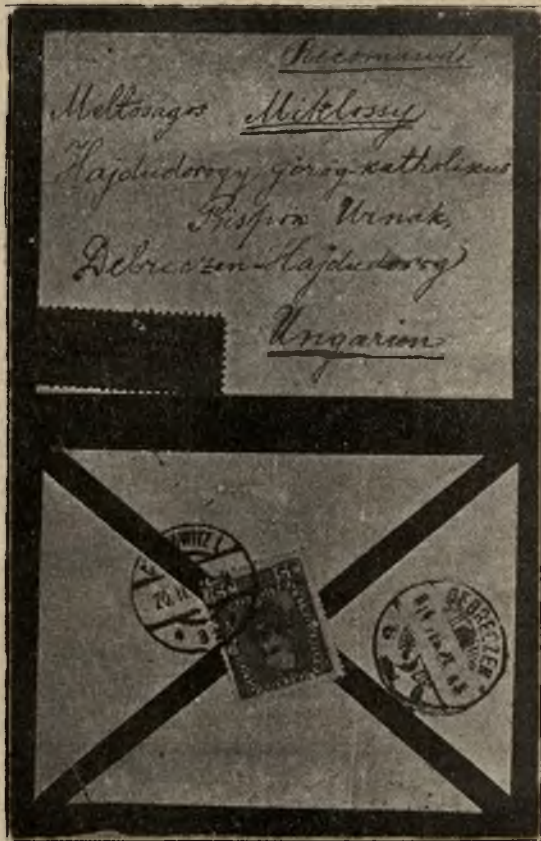 Recomandé
Meltosagos Miklossy
Hajdudorogy görög-katholikus
Püspök Urnak,
Debreczen-Hajdudorog
Ungarien
20.II.
DEBRECZEN